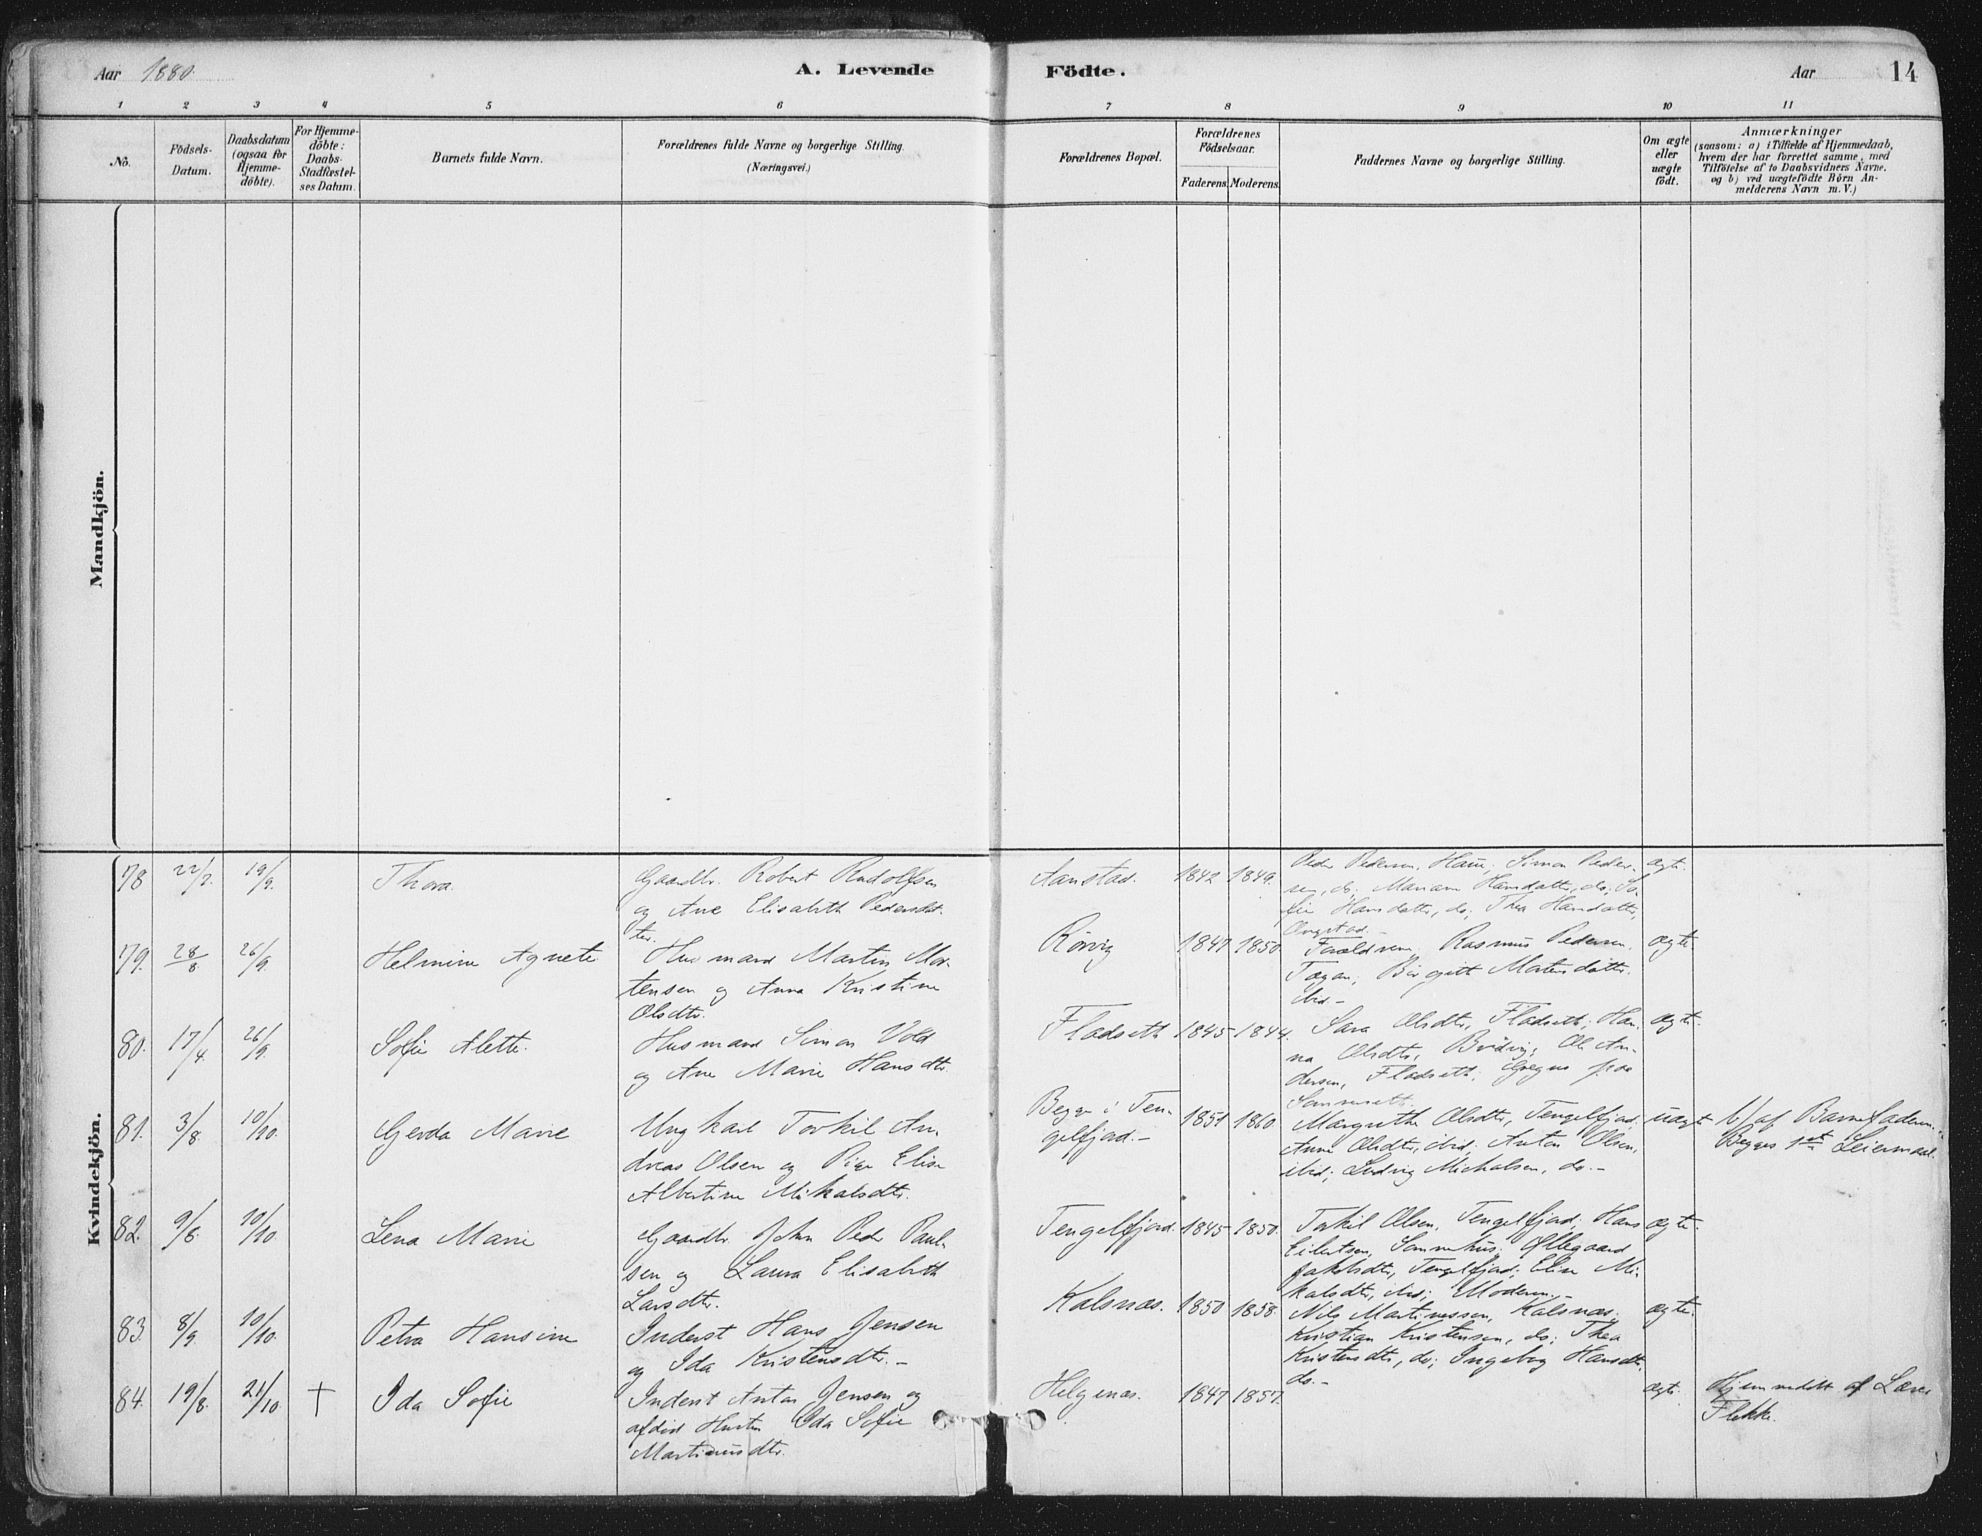 Aar 1880.
A. Levende Födte.
Aar
14
1 2 3 4 5 6 7 8 9 10 11
No.
Födsels-
Datum.
Daabsdatum
(ogsaa for
Hjemme-
döbte).
For Hjemme-
döbte:
Daabs-
Stadfæstel-
ses Datum.
Barnets fulde Navn.
Forældrenes fulde Navne og borgerlige Stilling.
(Næringsvei.)
Forældrenes Bopæl.
Forældrenes
Födselsaar.
Faderens. Moderens.
Faddernes Navne og borgerlige Stilling.
Om ægte
eller
uægte
födt.
Anmærkninger
(saasom: a) i Tilfælde af Hjemmedaab,
hvem der har forrettet samme, med
Tilföielse af to Daabsvidners Navne,
og b) ved uægtefödte Börn An-
melderens Navn m. V.)
Mandkjön.
Kvindekjön.
78 22/7. 19/9. Thora.
Gaardbr. Robert Rudolfsen
og Ane Elisabeth Pedersdat-
ter.
Aanstad. 1842 1849.
Peder Pedersen, Haus; Simon Peder-
sen, do; Mariane Hansdatter, do; So-
fie Hansdatter, do; Thea Hansdatter,
ægte.
79. 28/8 26/9. Helmine Agnete
Husmand Martin Mor-
tensen og Anna Kristine
Olsdtr.
Rörvig 1847 1850
Forældrene, Rasmus Pedersen,
Birgitte Mortensdatter,
ibid.-
Ægte
80. 17/4 26/9. Sofie Alette.
Husmand Simon Vold
og Ane Marie Hansdtr.
Fladseth 1845 1844.
Sara Olsdtr, Fladseth; Han-
na Olsdtr, Ole An-
dersen, Fladseth;
Ægte.
81. 3/8 10/10. Gerda Marie
Ungkarl Torkil An-
dreas Olsen og Pige Elise
Albertine Mikalsdtr.
Begge i Ten-
gelfjord.- 1851 1860
Margrethe Olsdtr, Tengelfjord;
Anne Olsdtr, ibid; Anton Olsen,
ibid; Ludvig Michalsen, do.-
uægte
af Barnefaderen.
Begges 1st Leiermaal.
82. 9/8. 10/10. Lena Marie
Gaardbr. John Peder Paul-
sen og Laura Elisabeth
Larsdtr.
Tengelfjord. 1845 1850.
Torkil Olsen, Tengelfjord; Hans
Eilertsen, Øllegaard
Jakobsdtr, Tengelfjord; Elise Mi-
kalsdtr, ibid; Moderen.-
Ægte.
83. 8/9 10/10. Petra Hansine
Inderst Hans Jensen
og Ida Kristensdtr.-
Kalsnæs. 1850 1858.
Nils Martinussen, Kalsnæs;
Kristian Kristensen, do; Thea
Kristensdtr, do; Ingeborg Hansdtr.
do.-
ægte.
84. 19/8. 21/10. † Ida Sofie
Inderst Anton Jensen og
afdöd Hustru Ida Sofie
Martinusdtr.
Helgenæs. 1847 1857.
ægte.
Hjemmedöbt af Lærer
Flekke.